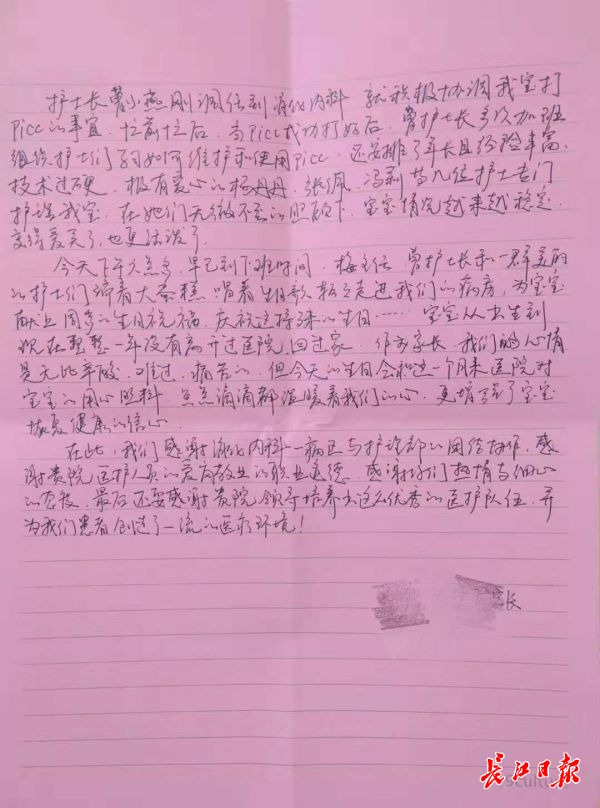 护士长曾小燕刚调任到消化内科 就积极协调我宝打
Picc的事宜，忙前忙后，当Picc成功打好后，曾护士长多次加班
组织护士们学习如何维护和使用Picc，还安排了年长且经验丰富、
技术过硬、极有爱心的杨丹丹、张佩、冯莉等几位护士专门
护理我宝，在她们无微不至的照顾下，宝宝情况越来越稳定，
变得爱笑了，也更活泼了。
今天下午六点多，早已到下班时间，梅主任 曾护士长和一群美丽
的护士们端着大蛋糕 唱着生日歌 走进我们的病房，为宝宝
献上周岁的生日祝福，庆祝这特殊的生日……宝宝从出生到
现在整整一年没有离开过医院，回过家，作为家长，我们的心情
是无比辛酸、难过、痛苦的，但今天的生日会和这一个月来医院对
宝宝的用心照料，点点滴滴都温暖着我们的心，更增强了宝宝
恢复健康的信心。
在此，我们感谢消化内科一病区与护理部的团结协作，感
谢贵院医护人员的爱岗敬业的职业道德，感谢你们热情与细心
的，最后还要感谢贵院领导培养出这么优秀的医护队伍，并
为我们患者创造了一流的医疗环境！
长
长江日报